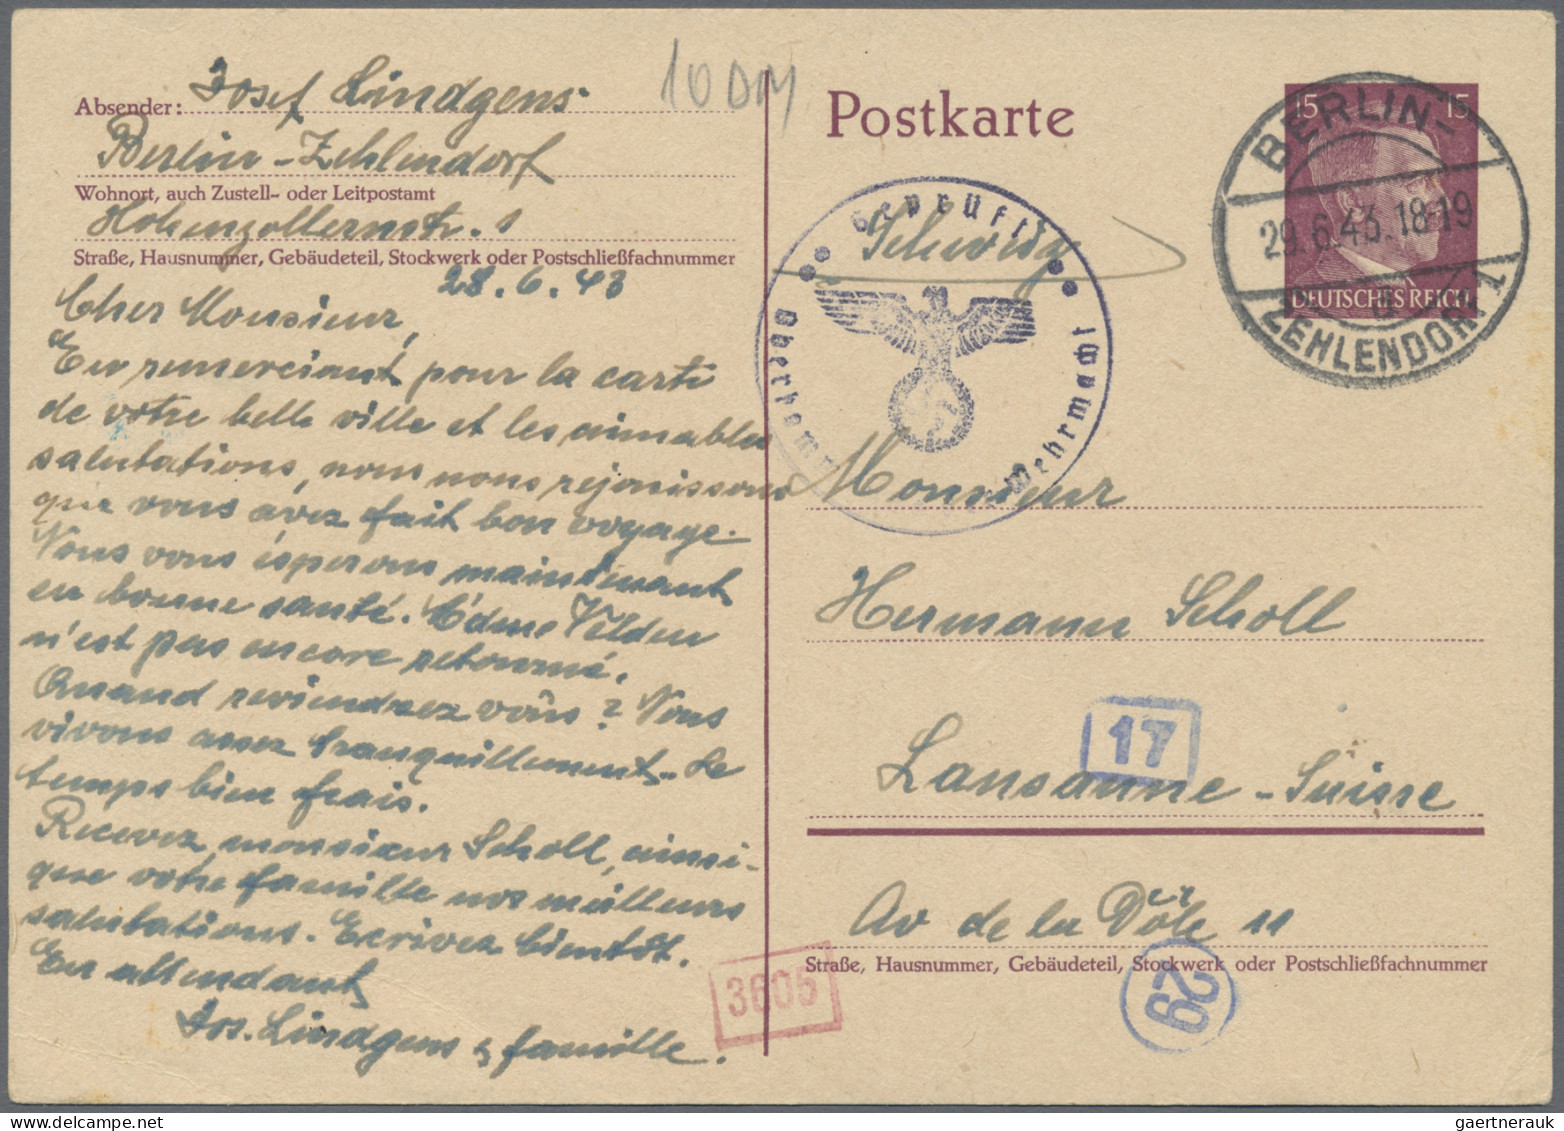 Absender: Josef Lindgens
Berlin-Zehlendorf
Wohnort, auch Zustell- oder Leitpostamt
Hohenzollernstr. 1
Straße, Hausnummer, Gebäudeteil, Stockwerk oder Postschließfachnummer
28.6.43
Cher Monsieur,
En remerciant pour la carte
de votre belle ville et les aimables
salutations, nous nous rejouissons
que vous avez fait bon voyage.
Nous vous ésperons maintenant
en bonne santé. Edme Velden
n'est pas encore retourné.
Quand reviendrez vous? Nous
vivons assez tranquillement. Le
temps bien frais.
Recevez, monsieur Scholl, ainsi-
que votre famille nos meilleurs
salutations. Ecrivez bientôt.
En attendant
Jos. Lindgens & famille.
10 DM
Postkarte
15 15
DEUTSCHES REICH
BERLIN-
29.6.43.18-19
ZEHLENDORF 1
Geprüft
Oberkomm
Wehrmacht
Schweiz
Monsieur
Hermann Scholl
17
Lausanne-Suisse
Av de la Dôle 11
Straße, Hausnummer, Gebäudeteil, Stockwerk oder Postschließfachnummer
3605
29
gaertnerauk